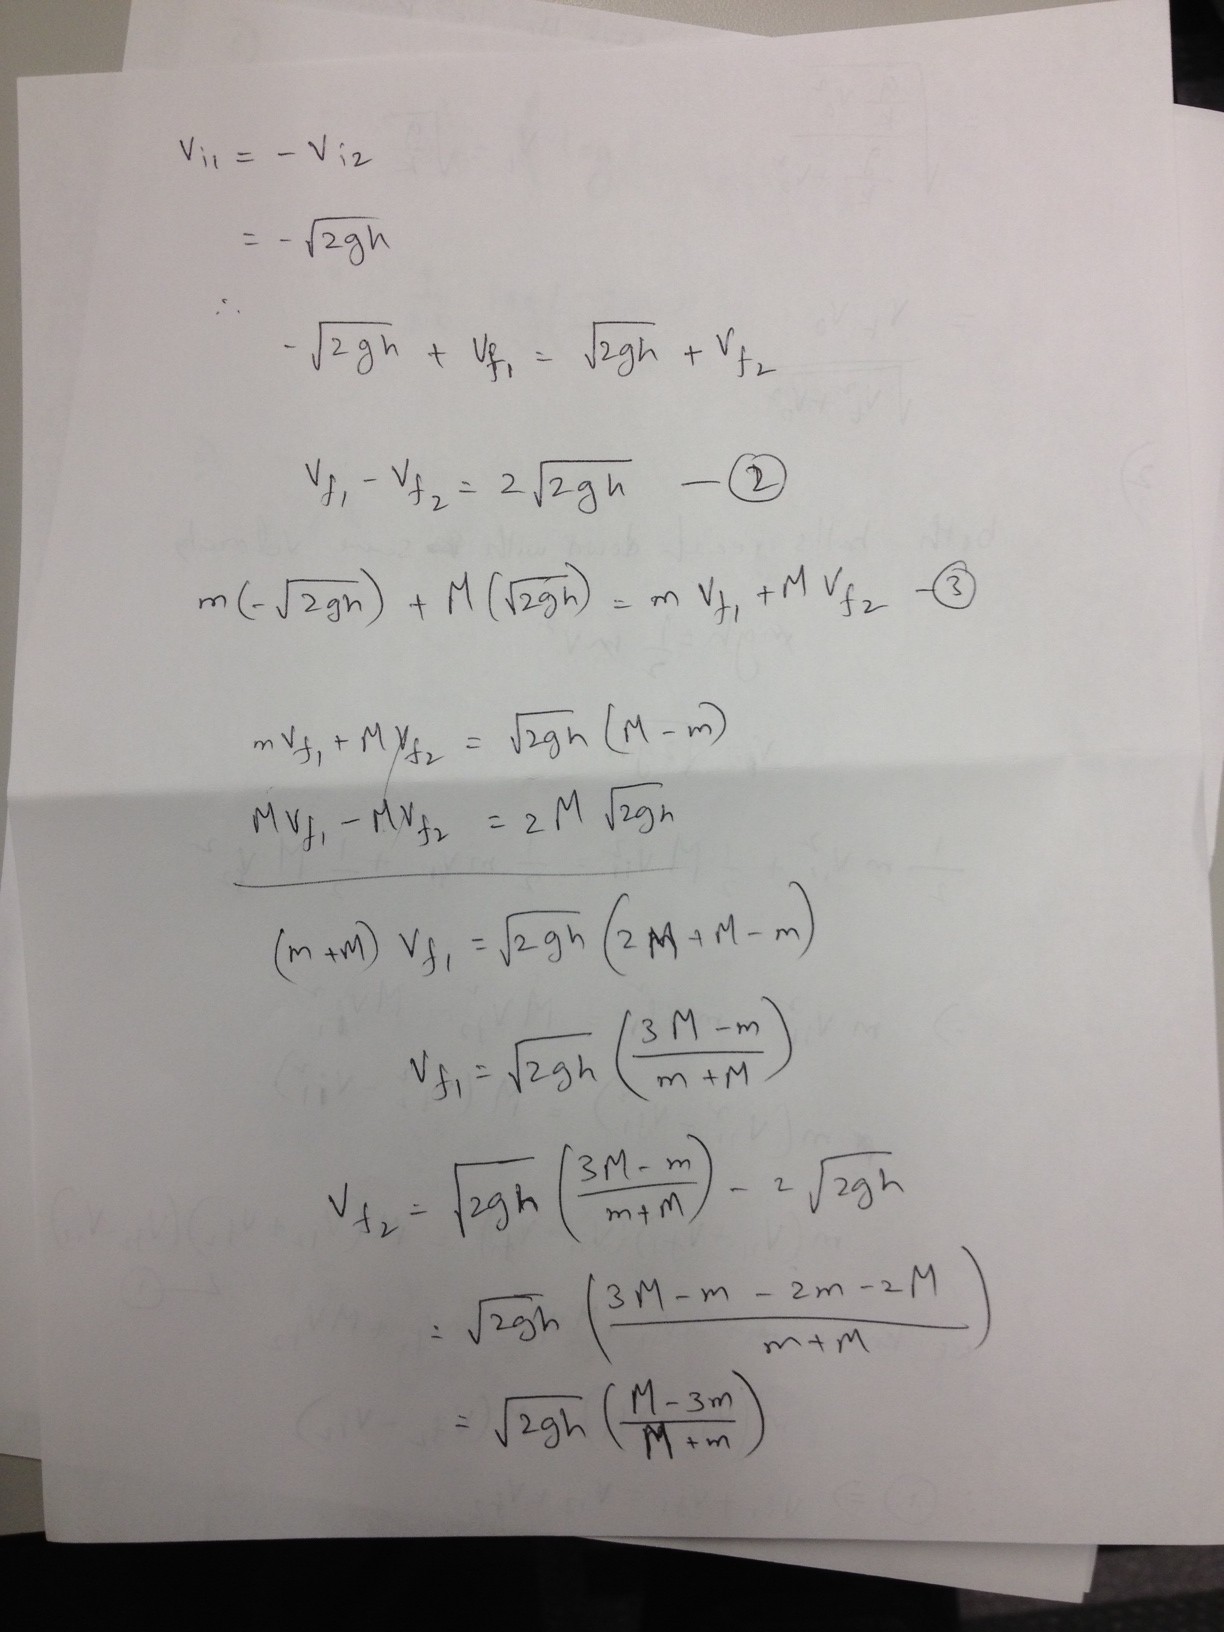 V_{i1} = - V_{i2}
= - √2gh
∴
- √2gh + V_{f1} = √2gh + V_{f2}
V_{f1} - V_{f2} = 2 √2gh — ②
m(-√2gh) + M(√2gh) = m V_{f1} + M V_{f2} — ③
m V_{f1} + M V_{f2} = √2gh (M - m)
M V_{f1} - M V_{f2} = 2 M √2gh
(m + M) V_{f1} = √2gh (2M + M - m)
V_{f1} = √2gh ((3M - m)/(m + M))
V_{f2} = √2gh ((3M - m)/(m + M)) - 2 √2gh
= √2gh ((3M - m - 2m - 2M)/(m + M))
= √2gh ((M - 3m)/(M + m))